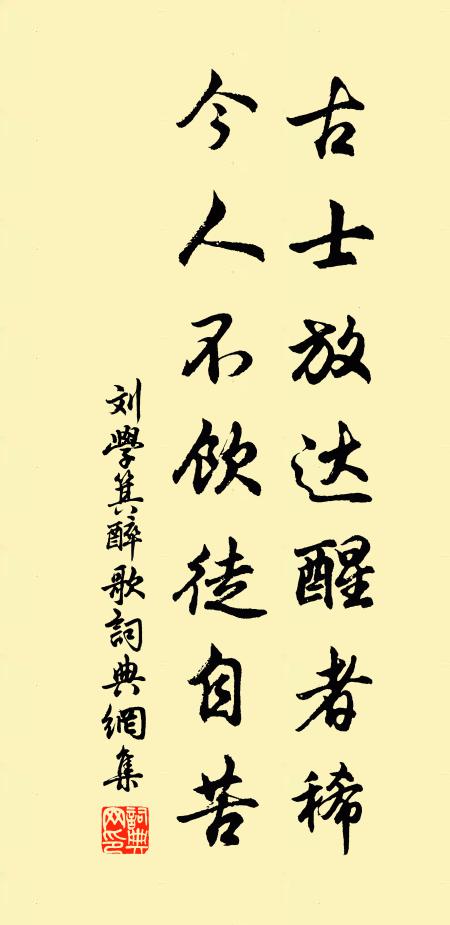 古士放达醒者稀
今人不饮徒自苦
刘学箕醉歌词典網集
詞典網印